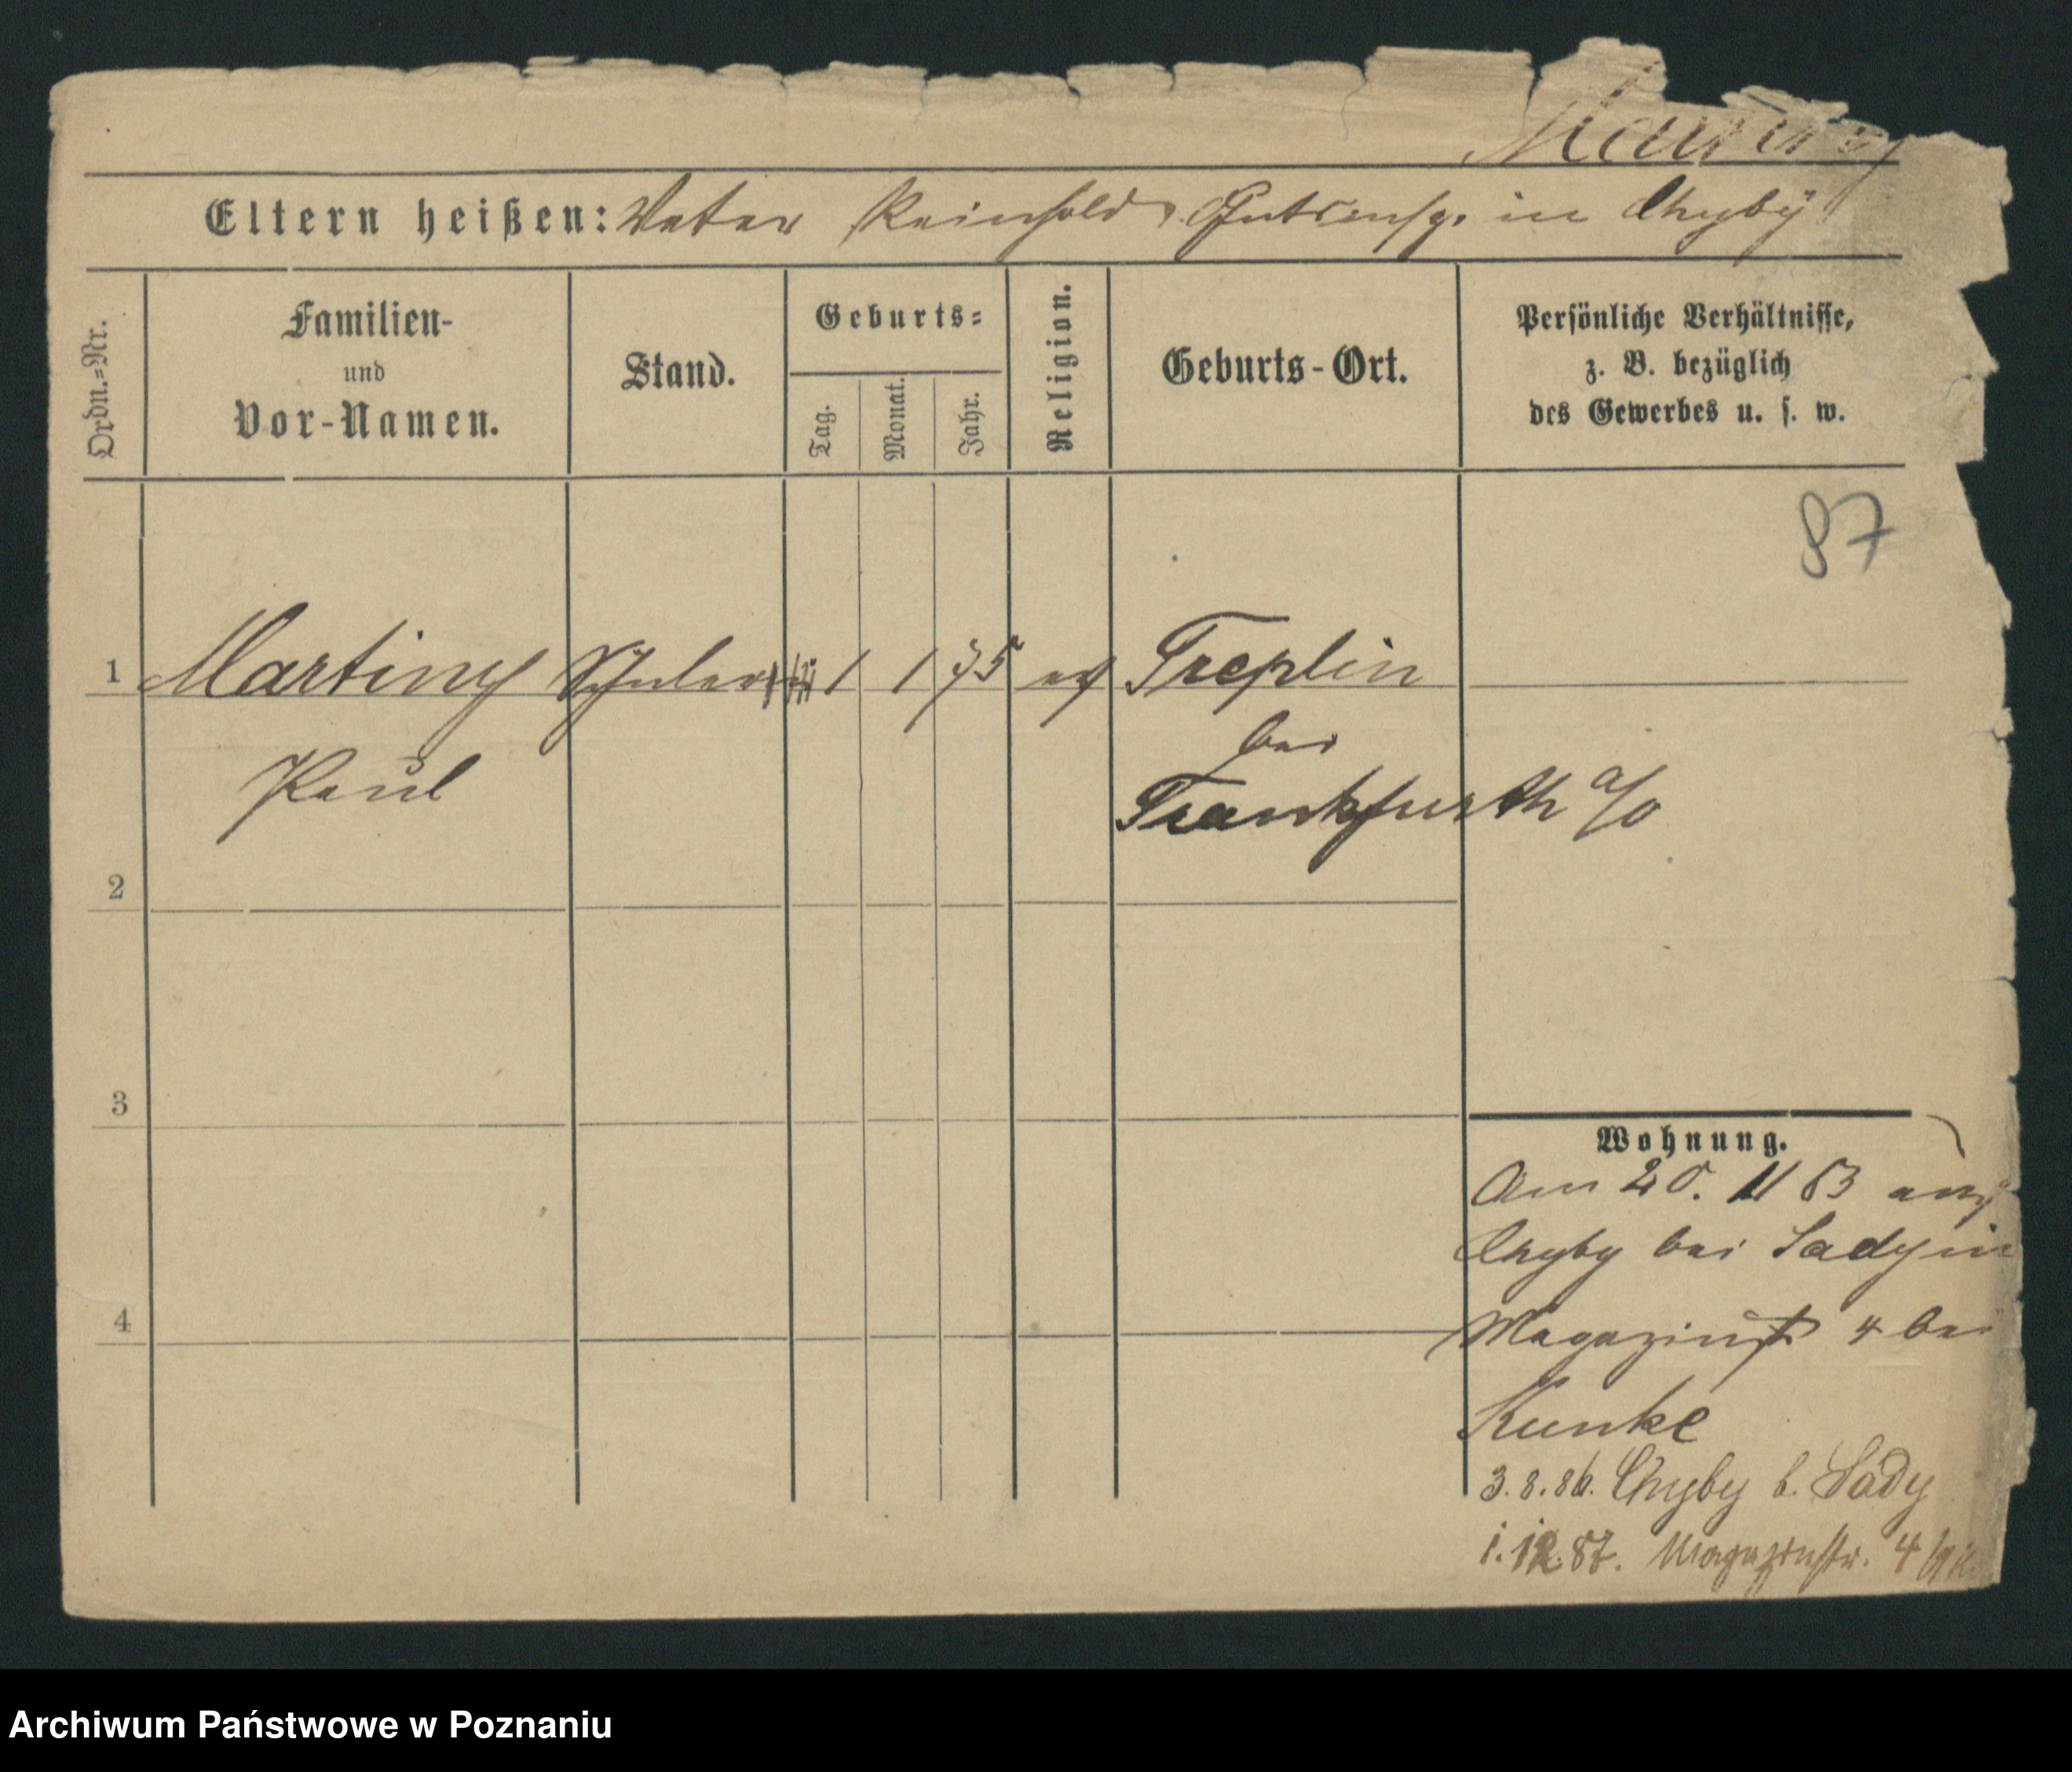 Eltern heißen: Vater Reinhold, Gutsinsp. in Chyby
Ordn.=Nr.
Familien-
und
Vor-Namen.
Stand.
Geburts=
Tag.
Monat.
Jahr.
Religion.
Geburts-Ort.
Persönliche Verhältnisse,
z. B. bezüglich
des Gewerbes u. s. w.
87
1 Martiny Schüler 1 1 75 ev Treplin
bei
Paul Frankfurth a/O
2
3
4
Wohnung.
Am 20. 11 83
Chyby bei Sady in
Magazinst 4 bei
Kunke
3.8.86. Chyby b. Sady
1.12.87. Magazinstr. 4
Archiwum Państwowe w Poznaniu